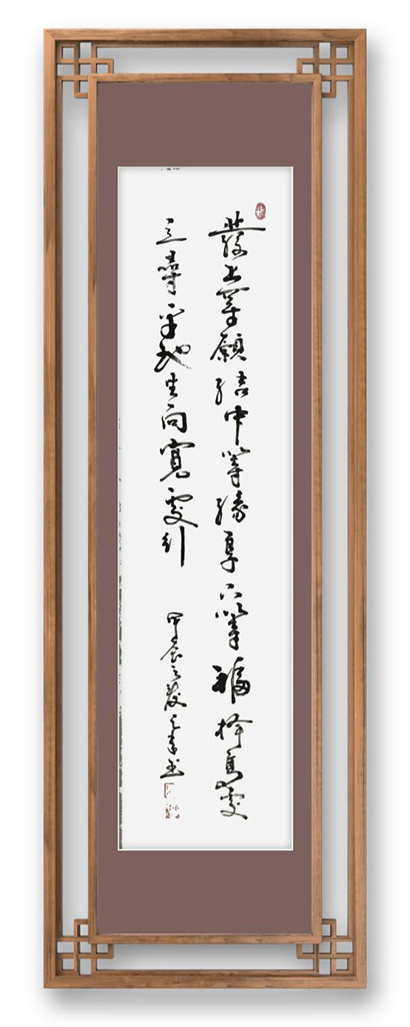 發上等願結中等緣享下等福擇高處
立尋平地坐向寬處行
甲辰之 書